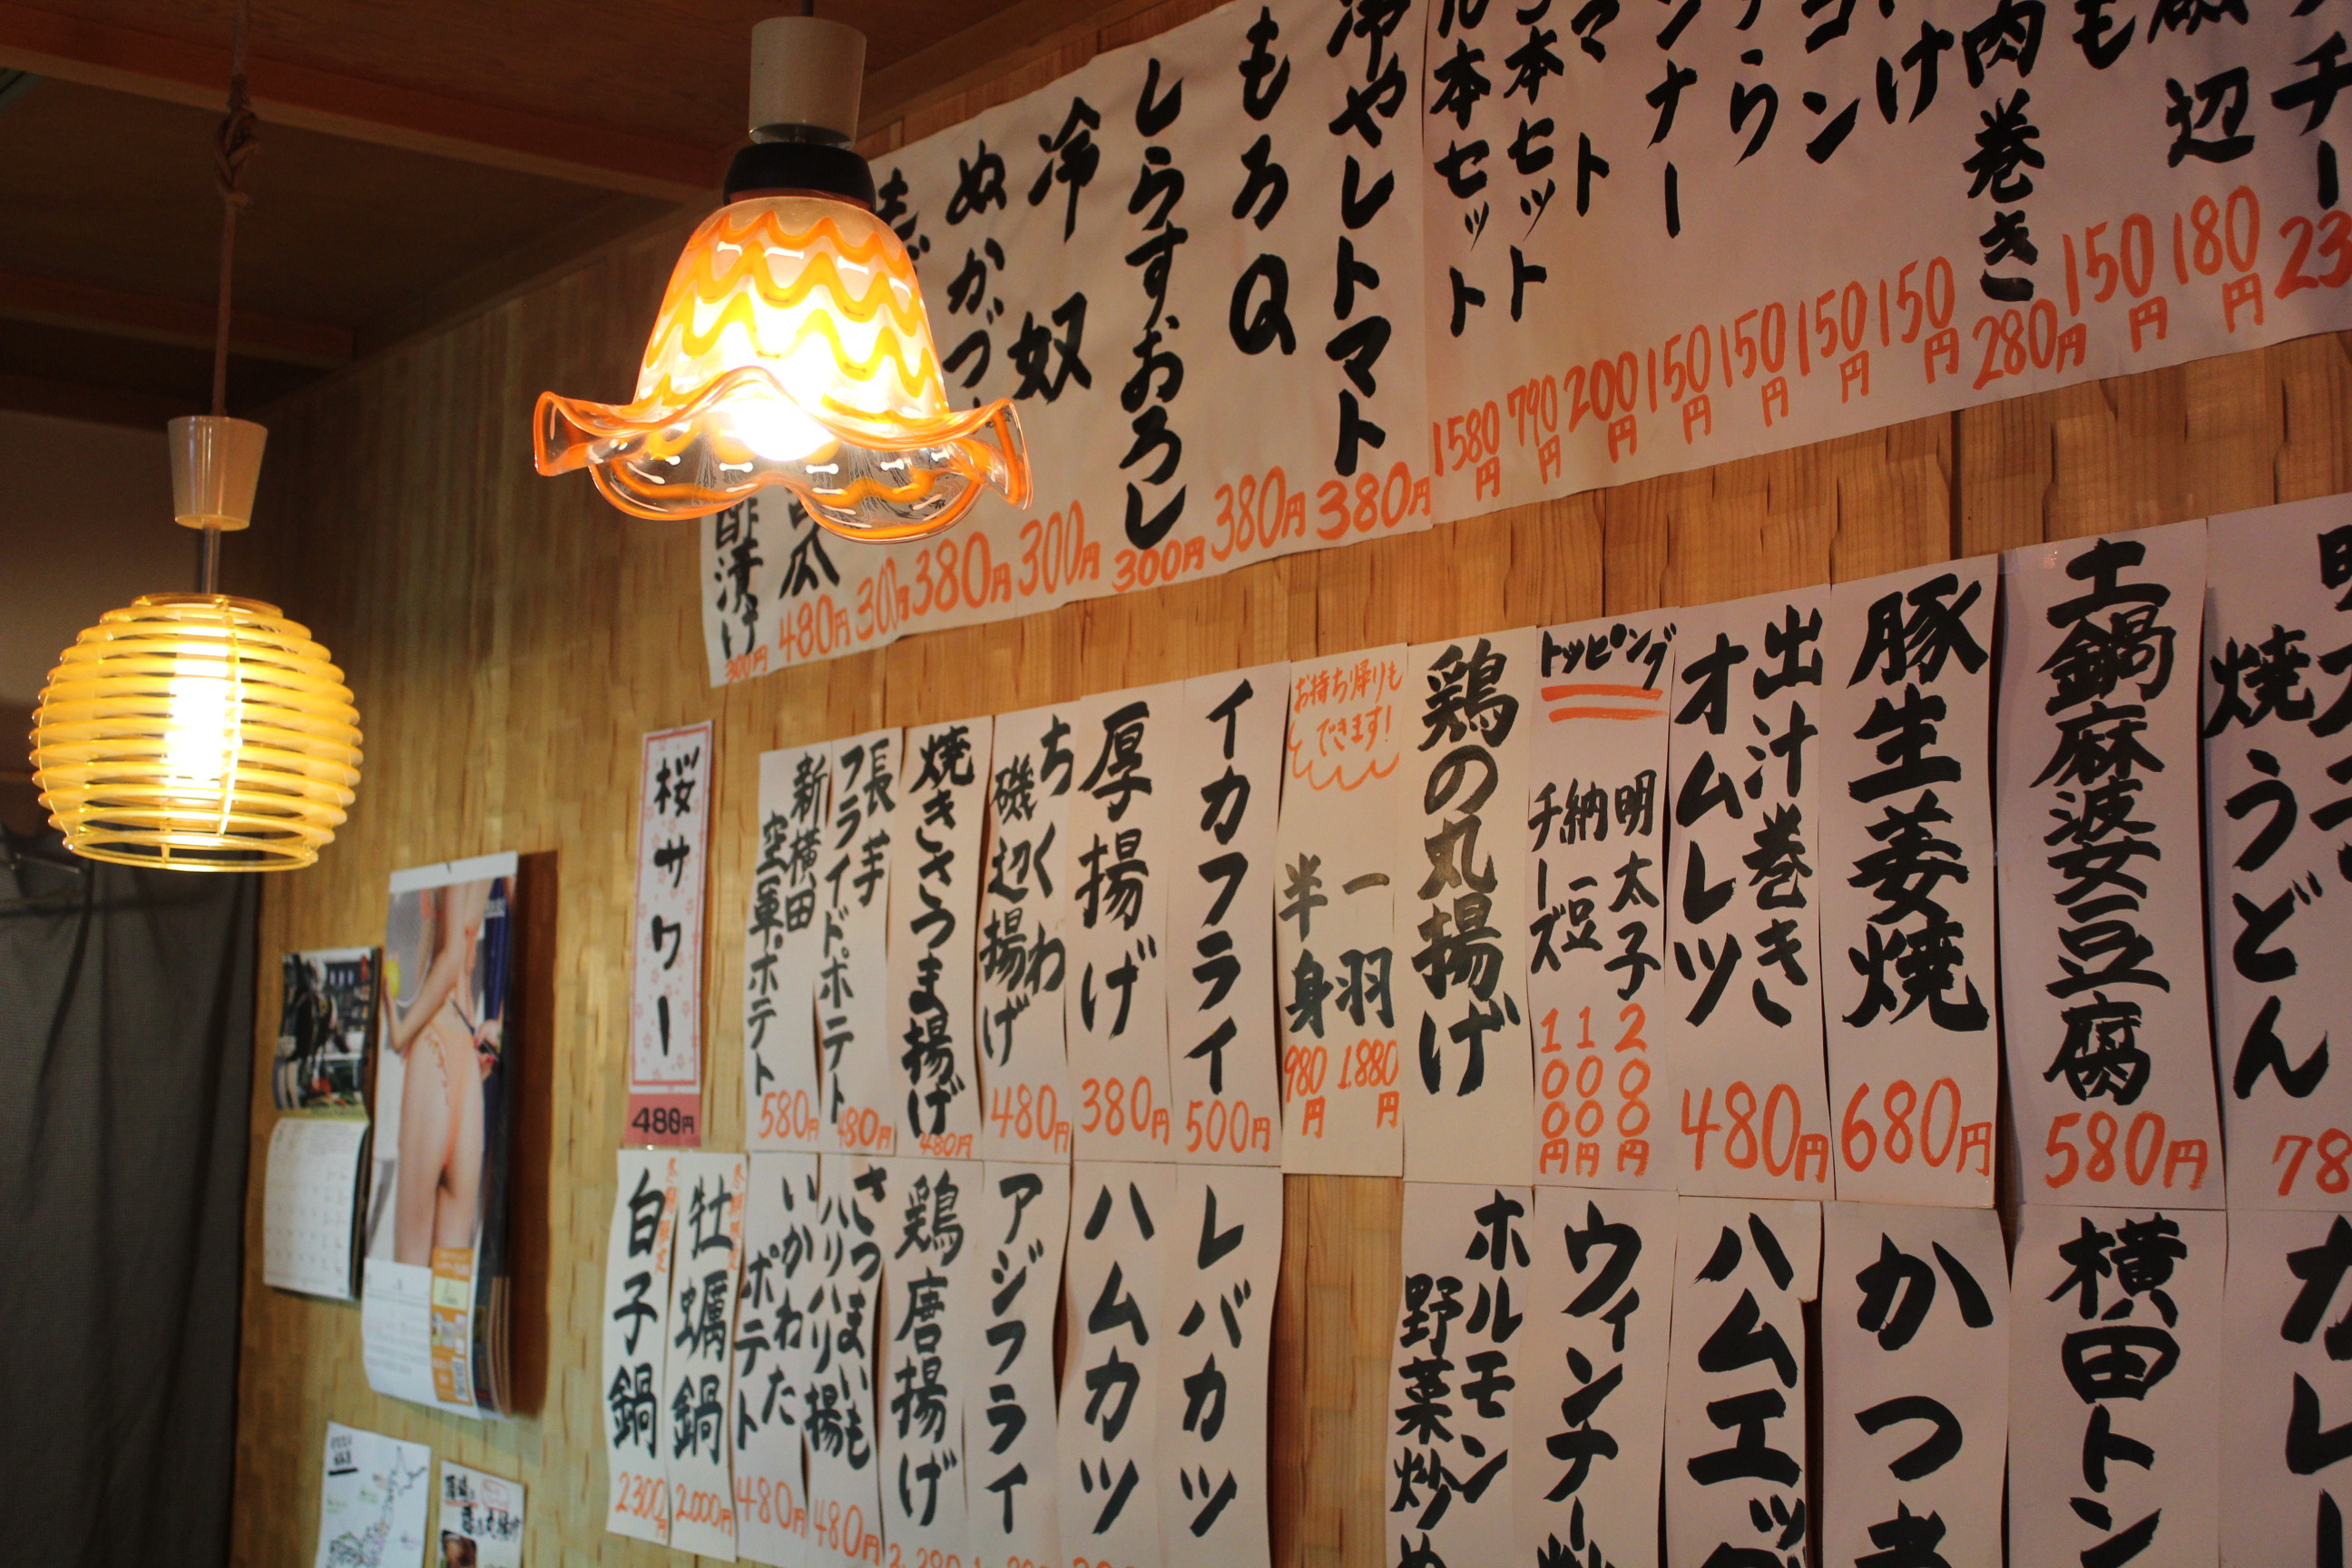 冷やしトマト
380円
もろQ
380円
しらすおろし
300円
冷奴
300円
ぬかづ
380円
300円
瓜
480円
酢漬け
300円
チー
23
磯辺
180円
も
150円
肉巻き
280円
け
150円
コン
150円
うら
150円
ンナー
150円
マト
200円
5本セット
790円
10本セット
1580円
焼うどん
78
土鍋麻婆豆腐
580円
豚生姜焼
680円
出汁巻き
オムレツ
480円
トッピング
明太子
200円
納豆
100円
チーズ
100円
鶏の丸揚げ
お持ち帰りも
できます!
一羽
1.880円
半身
980円
イカフライ
500円
厚揚げ
380円
ちくわ
磯辺揚げ
480円
焼きさつま揚げ
480円
長芋
フライドポテト
480円
新横田
空軍ポテト
580円
桜サワー
480円
横田トン
かつ
ハムエッグ
ウィンナー炒
ホルモン
野菜炒め
レバカツ
ハムカツ
アジフライ
鶏唐揚げ
さつまいも
ハリハリ揚
480円
いかわた
ポテト
480円
牡蠣鍋
2.000円
白子鍋
2300円